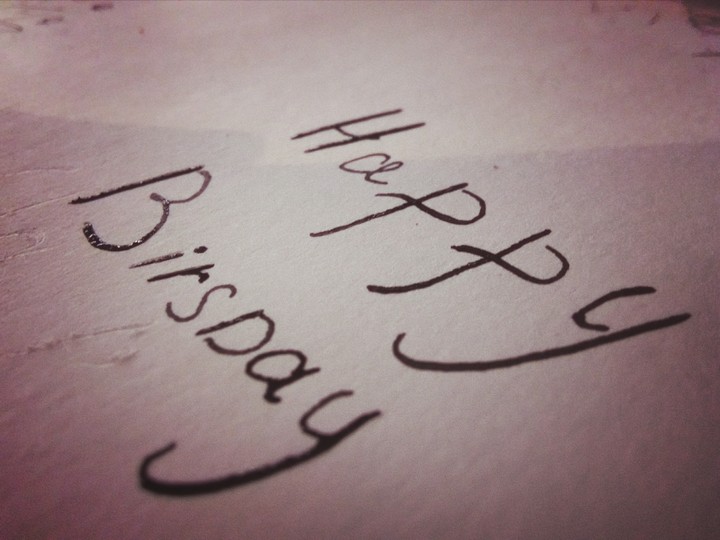 Happy
BirsDay